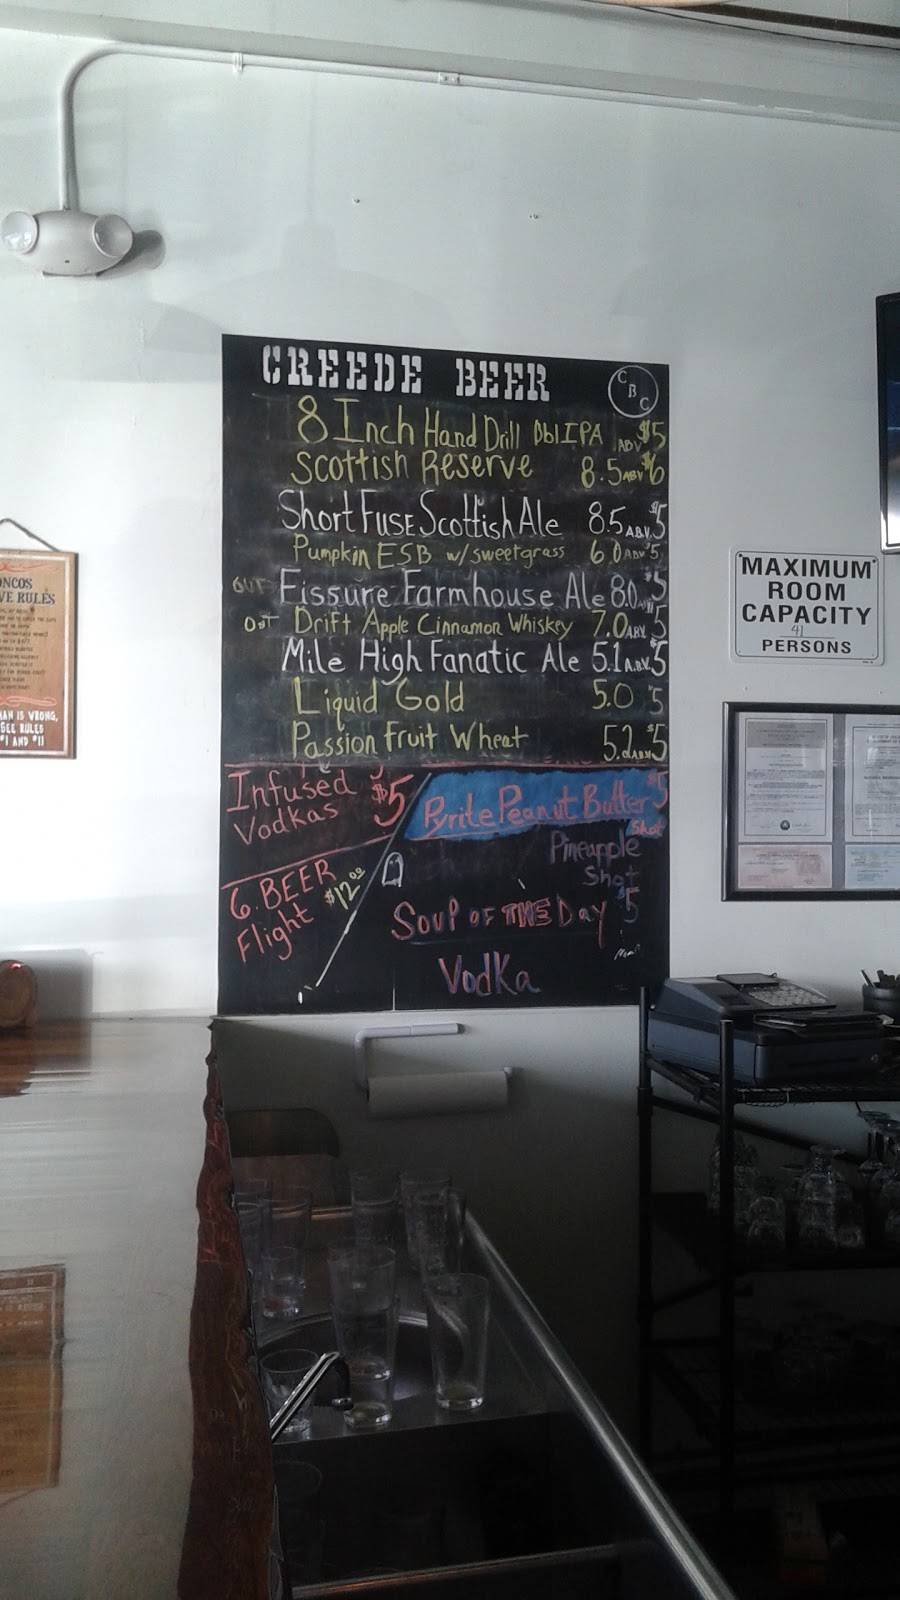 CREEDE BEER
CBC
8 Inch Hand Drill Dbl IPA ABV $5
Scottish Reserve 8.5 ABV $6
Short Fuse Scottish Ale 8.5 A.B.V. $5
Pumpkin ESB w/ sweetgrass 6.0 ABV $5
OUT Fissure Farmhouse Ale 8.0 $5
OUT Drift Apple Cinnamon Whiskey 7.0 ABV. 5
Mile High Fanatic Ale 5.1 A.B.V. $5
Liquid Gold 5.0 $5
Passion Fruit Wheat 5.2 ABV $5
Infused Vodkas $5
Pyrite Peanut Butter Shot $5
Pineapple Shot
6. BEER Flight $12.00
Soup OF THE Day $5
Vodka
MAXIMUM
ROOM
CAPACITY
41
PERSONS
RULES
MAN IS WRONG,
SEE RULES
#1 AND #11